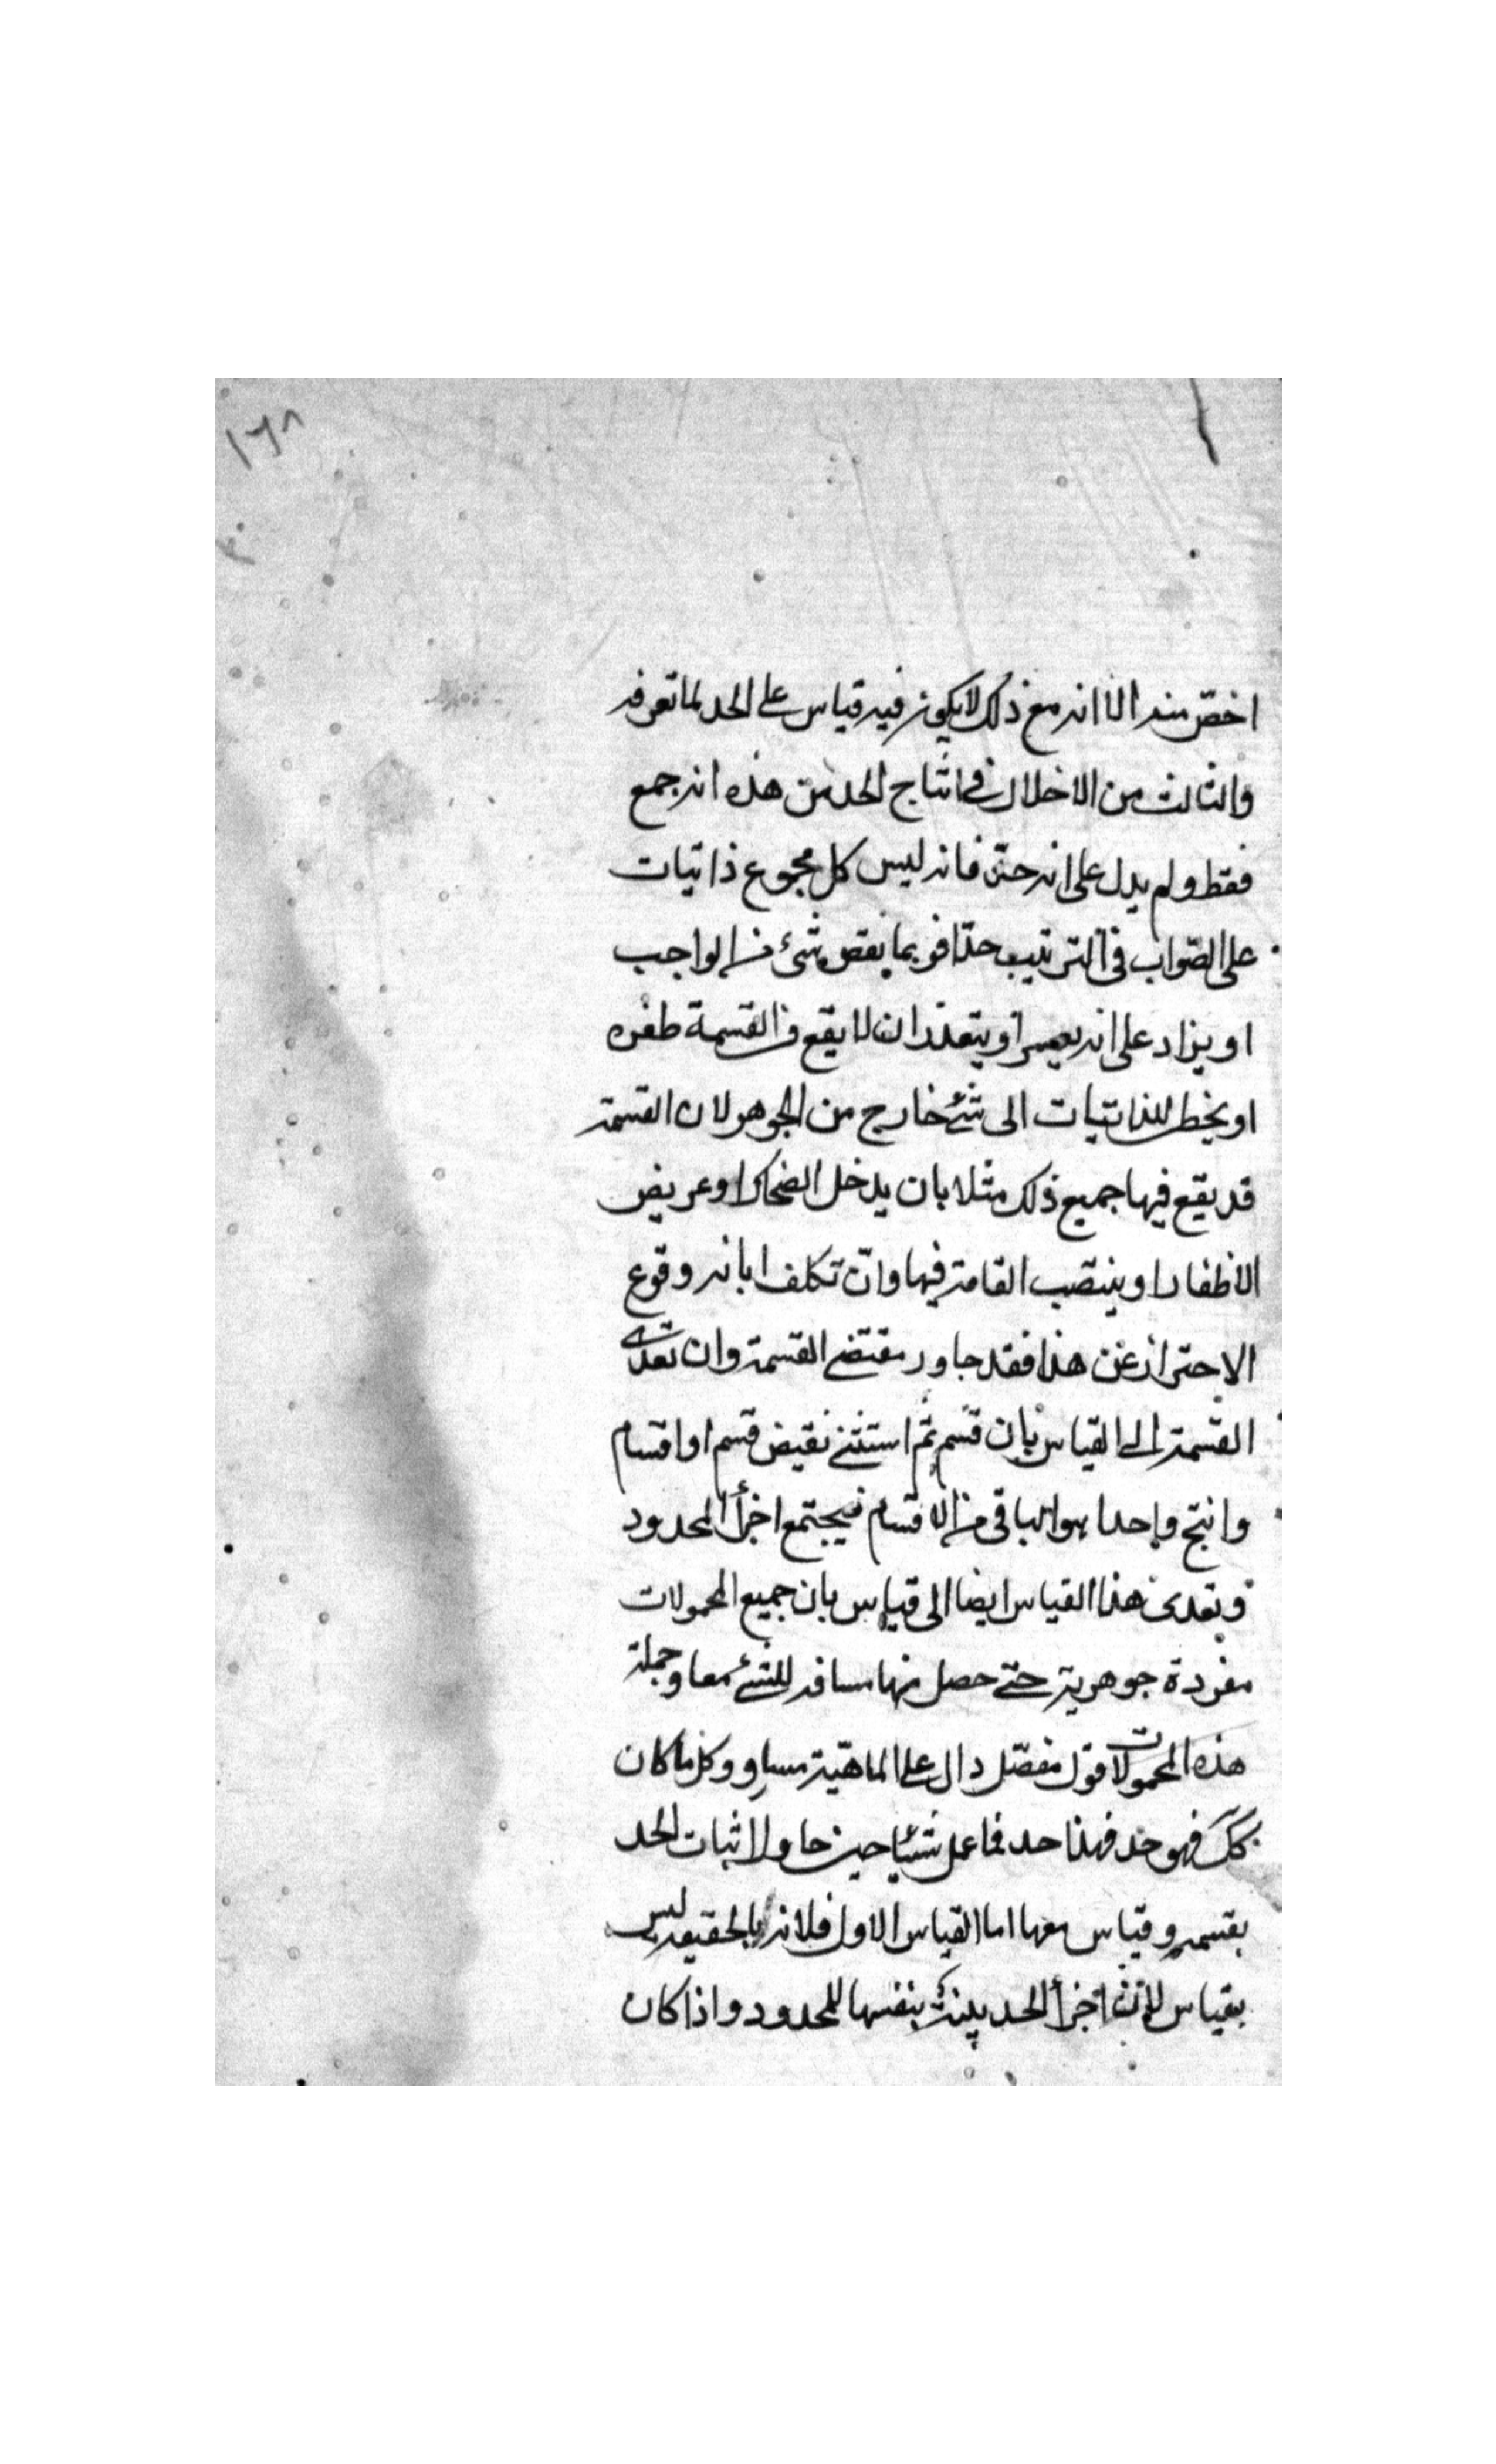 ١٦٨
اخصّ منه الا انه مع ذلك لا يكون فيه قياس على الحد لما تعرفه
والثالث من الاخلال في انتاج الحد من هذه انه جمع
فقط ولم يدل على انه حدّ فانه ليس كل مجموع ذاتيات
على الصّواب في الترتيب حدّا فربما نقص شئ من الواجب
او يزاد على انه يعسر او يتعذر ان لا يقع في القسمة طفره
او يخطى للذاتيات الى شئ خارج من الجوهر لان القسمة
قد يقع فيها جميع ذلك مثلا بان يدخل الضحاك او عريض
الاظفار او ينتصب القامة فيها وان تكلف ابانه وقوع
الاحتراز عن هذا فقد جاور مقتضى القسمة وان تعدى
القسمة الى القياس بان قسم ثم استثنى نقيض قسم او اقسام
وانتج واحدا هو الباقى من الاقسام فيجتمع اجزأ المحدود
وتعدى هذا القياس ايضا الى قياس بان جميع المحمولات
مفردة جوهرية حتى حصل منها مسافه للشئ معا وجملة
هذه المحمولات قول مفصّل دال على الماهيّة مساو وكل ما كان
كك فهو حد فهذا حد فما عمل شئيا حين حاول اثبات الحد
بقسمه وقياس معها اما القياس الاول فلانه بالحقيقه ليس
بقياس لانّ اجزأ الحد بينة بنفسها للمحدود واذا كان